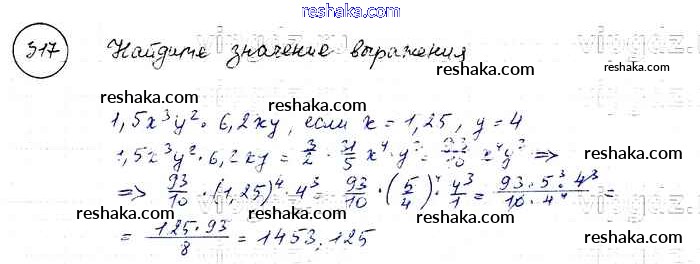 reshaka.com
317 Найдите значение выражения
reshaka.com reshaka.com reshaka.com
1,5x³y² · 6,2xy, если x = 1,25, y = 4
1,5x³y² · 6,2xy = 3/2 · 31/5 x⁴ · y³ = 93/10 x⁴y³ ⇒
reshaka.com reshaka.com
⇒ 93/10 · (1,25)⁴ · 4³ = 93/10 · (5/4)⁴ · 4³/1 = 93 · 5³ · 4³/10 · 4⁴ =
= 125 · 93/8 = 1453.125
reshaka.com reshaka.com reshaka.com